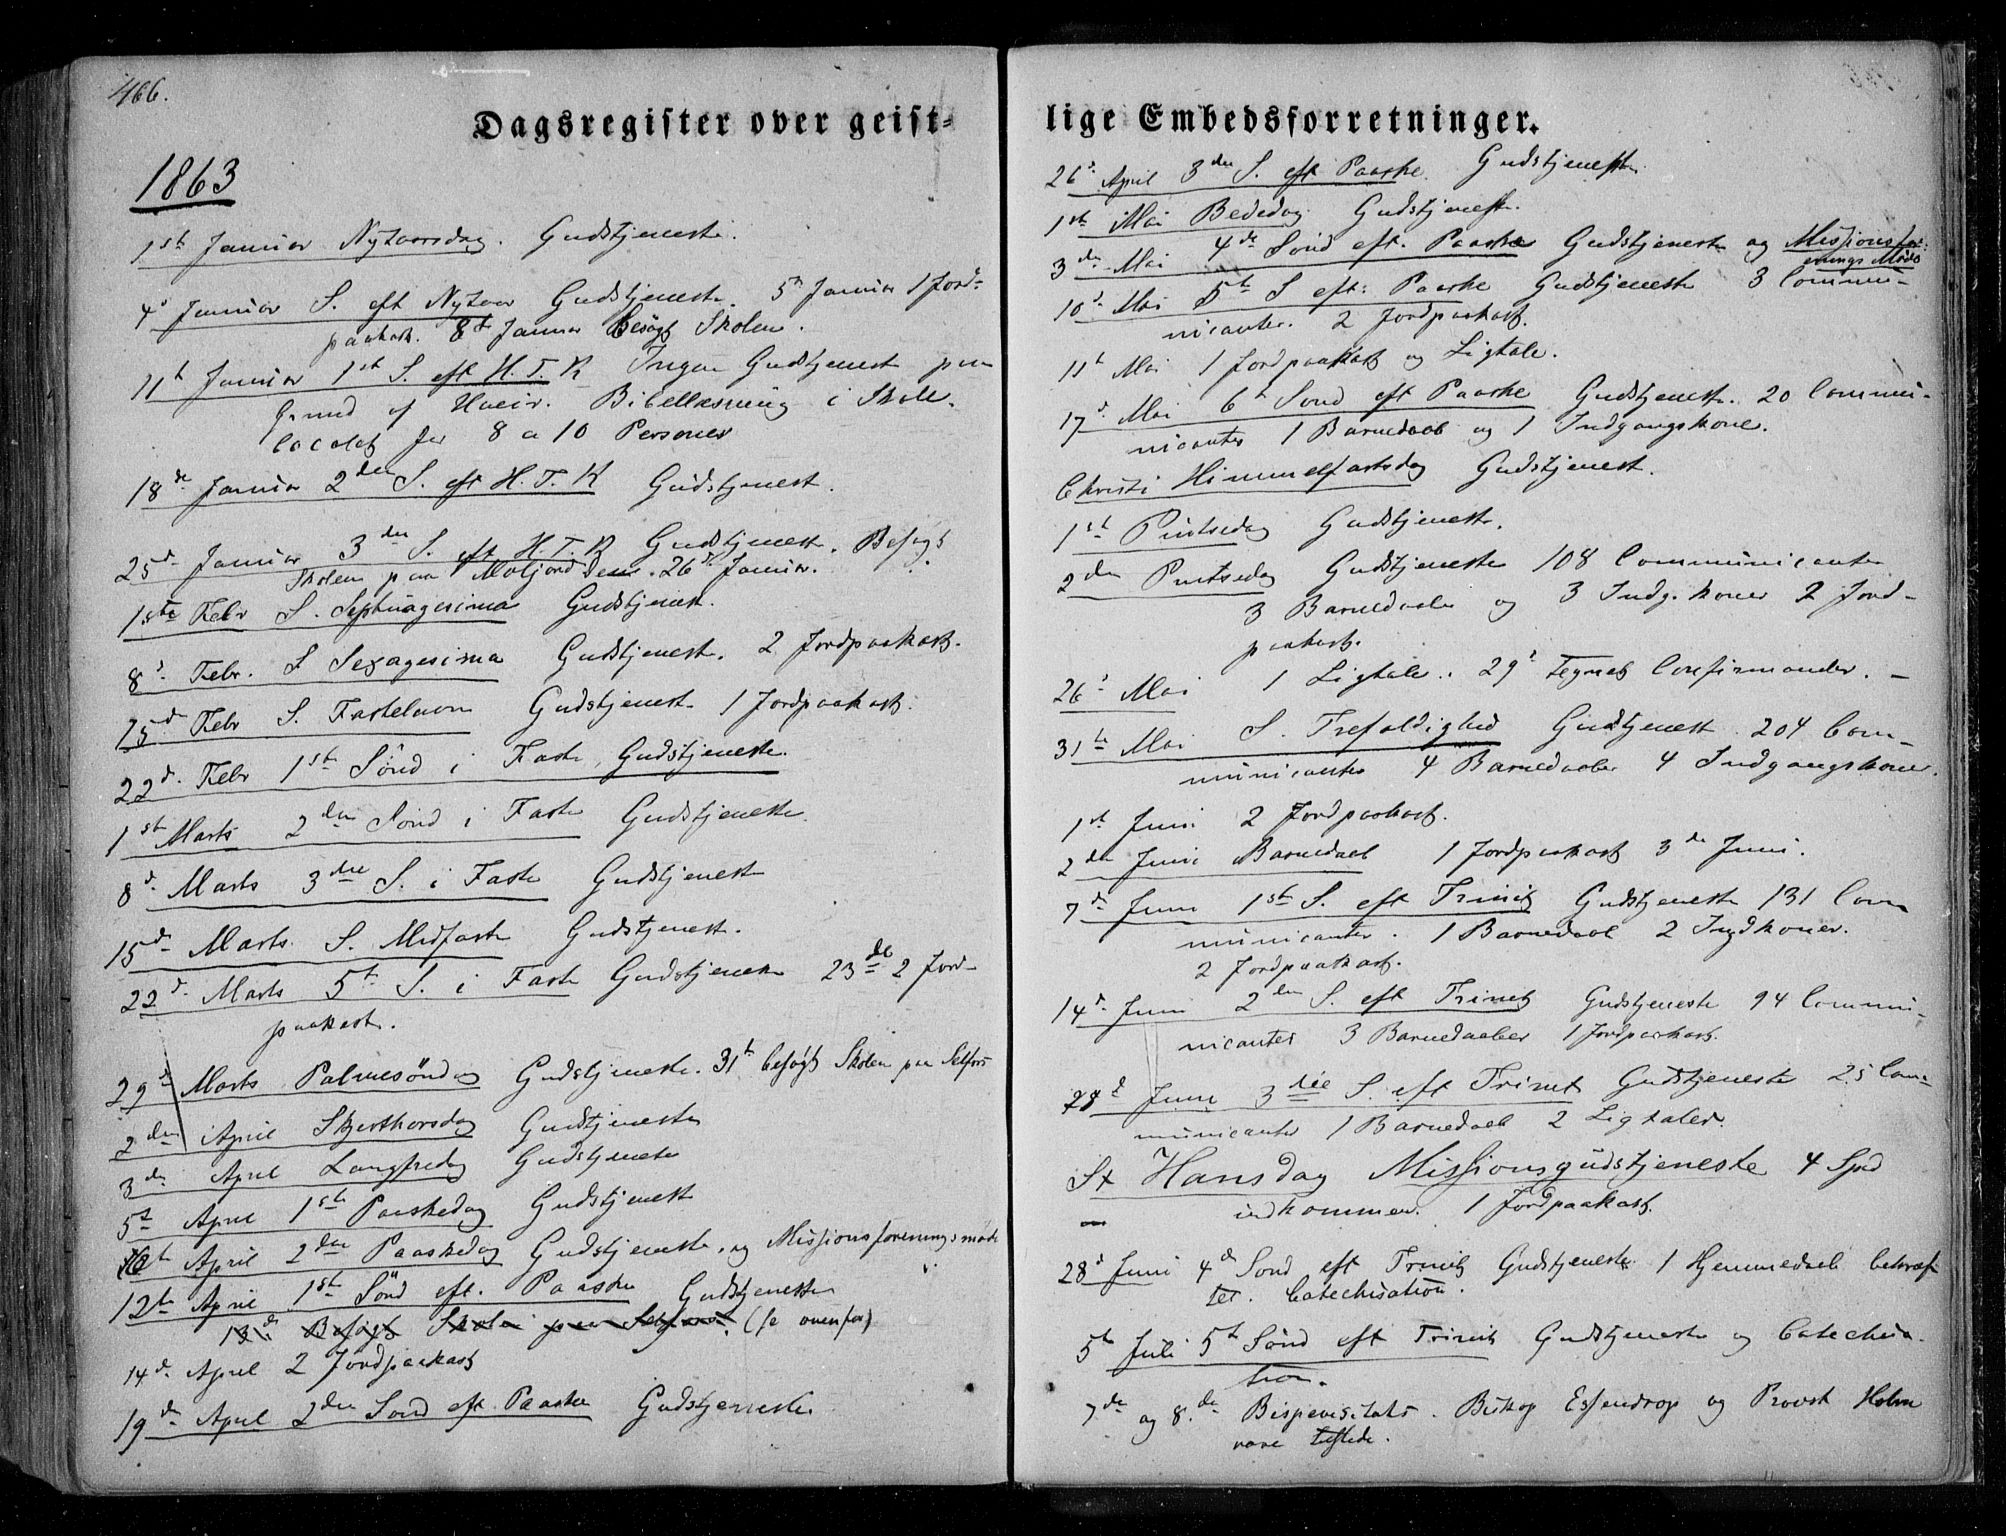 466.
Dagsregister over geist-
1863
1ste Januar Nytaarsdag. Gudstjeneste.
4d Januar S. eft Nytaar Gudstjeneste. 5t Januar 1 Jord-
paakast. 8d Januar besögt Skolen.
11t Januar 1st S. eft H. T. K Ingen Gudstjenest paa
Grund af Uveir. Bibellæsning i Skole-
localet for 8 a 10 Personer
18de Januar 2den S. eft H. T. K Gudstjenest.
25d Januar 3den S. eft H. T. K Gudstjenest. Besøgt
Skolen paa 26d Januar.
1ste Febr S. Septuagesima Gudstjenest.
8d Febr. S Sexagesima Gudstjenest. 2 Jordpaakast.
15d Febr S. Fastelavn Gudstjenest 1 Jordpaakast.
22d. Febr 1st Sönd i Faste, Gudstjeneste.
1st Marts 2den Sönd i Faste Gudstjeneste
8d. Marts 3die S. i Faste Gudstjenest
15d Marts S. Midfaste Gudstjenest.
22d. Marts 5t S. i Faste Gudstjeneste 23de 2 Jord-
paakast.
29d Marts Palmesöndag Gudstjeneste. 31t besøgt Skolen paa Selfors
2den April Skjerthorsdag Gudstjeneste
3die April Langfredag Gudstjeneste
5t April 1st Paaskedag Gudstjenest
6t April 2den Paaskedag Gudstjeneste, og Missionsforeningsmöde
12t April 1st Sönd eft. Paaske Gudstjeneste
13de Besøgt Skolen paa Selfors. (se ovenfor)
14d. April 2 Jordpaakast
19d. April 2den Sönd eft Paaske Gudstjeneste
lige Embedsforretninger.
26d April 3die S. eft Paaske Gudstjeneste.
1st Mai Bededag Gudstjeneste.
3die Mai 4de Sönd eft. Paaske Gudstjeneste og Missionsfor-
enings Möde
10d. Mai 5t S eft: Paaske Gudstjeneste 3 Commu-
nicanter. 2 Jordpaakast.
11t Mai 1 Jordpaakast og Ligtale.
17d. Mai 6t Sönd eft Paaske Gudstjeneste. 20 Commu-
nicanter 1 Barnedaab og 1 Indgangskone.
Christi Himmelfartsdag Gudstjenest.
1st Pintsedag Gudstjeneste.
2den Pintsedag Gudstjeneste 108 Communicanter
3 Barnedaabe og 3 Indg.koner 2 Jord-
paakast.
26d Mai 1 Ligtale. 29d tegnet Confirmander. -
31te Mai S. Trefoldighed Gudstjenest 204 Com-
municanter 4 Barnedaaber 4 Indgangskoner.
1st Juni 2 Jordpaakast.
2den Juni Barnedaab 1 Jordpaakast 3die Juni.
7de Juni 1st S. eft Trinit Gudstjeneste 131 Com
municanter. 1 Barnedaab 2 Ingdkoner.
2 Jordpaakast.
14d. Juni 2den S. eft Trinit Gudstjeneste 94 Commu-
nicanter 3 Barnedaaber 1 Jordpaakast.
21d Juni 3die S. eft Trinit Gudstjeneste 25 Com-
municanter 1 Barnedaab 2 Ligtaler.
St Hansdag Missionsgudstjeneste 4 Spd
indkommen. 1 Jordpaakast.
28d Juni 4d Sönd eft Trinit Gudstjeneste 1 Hjemmedaab bekræf
tet. Catechisation.
5t Juli 5t Sönd eft Trinit Gudstjeneste og Catechisa-
tion.
7de og 8de Bispevisitats. Biskop Essendrop og Provst Holm
vare tilstede.